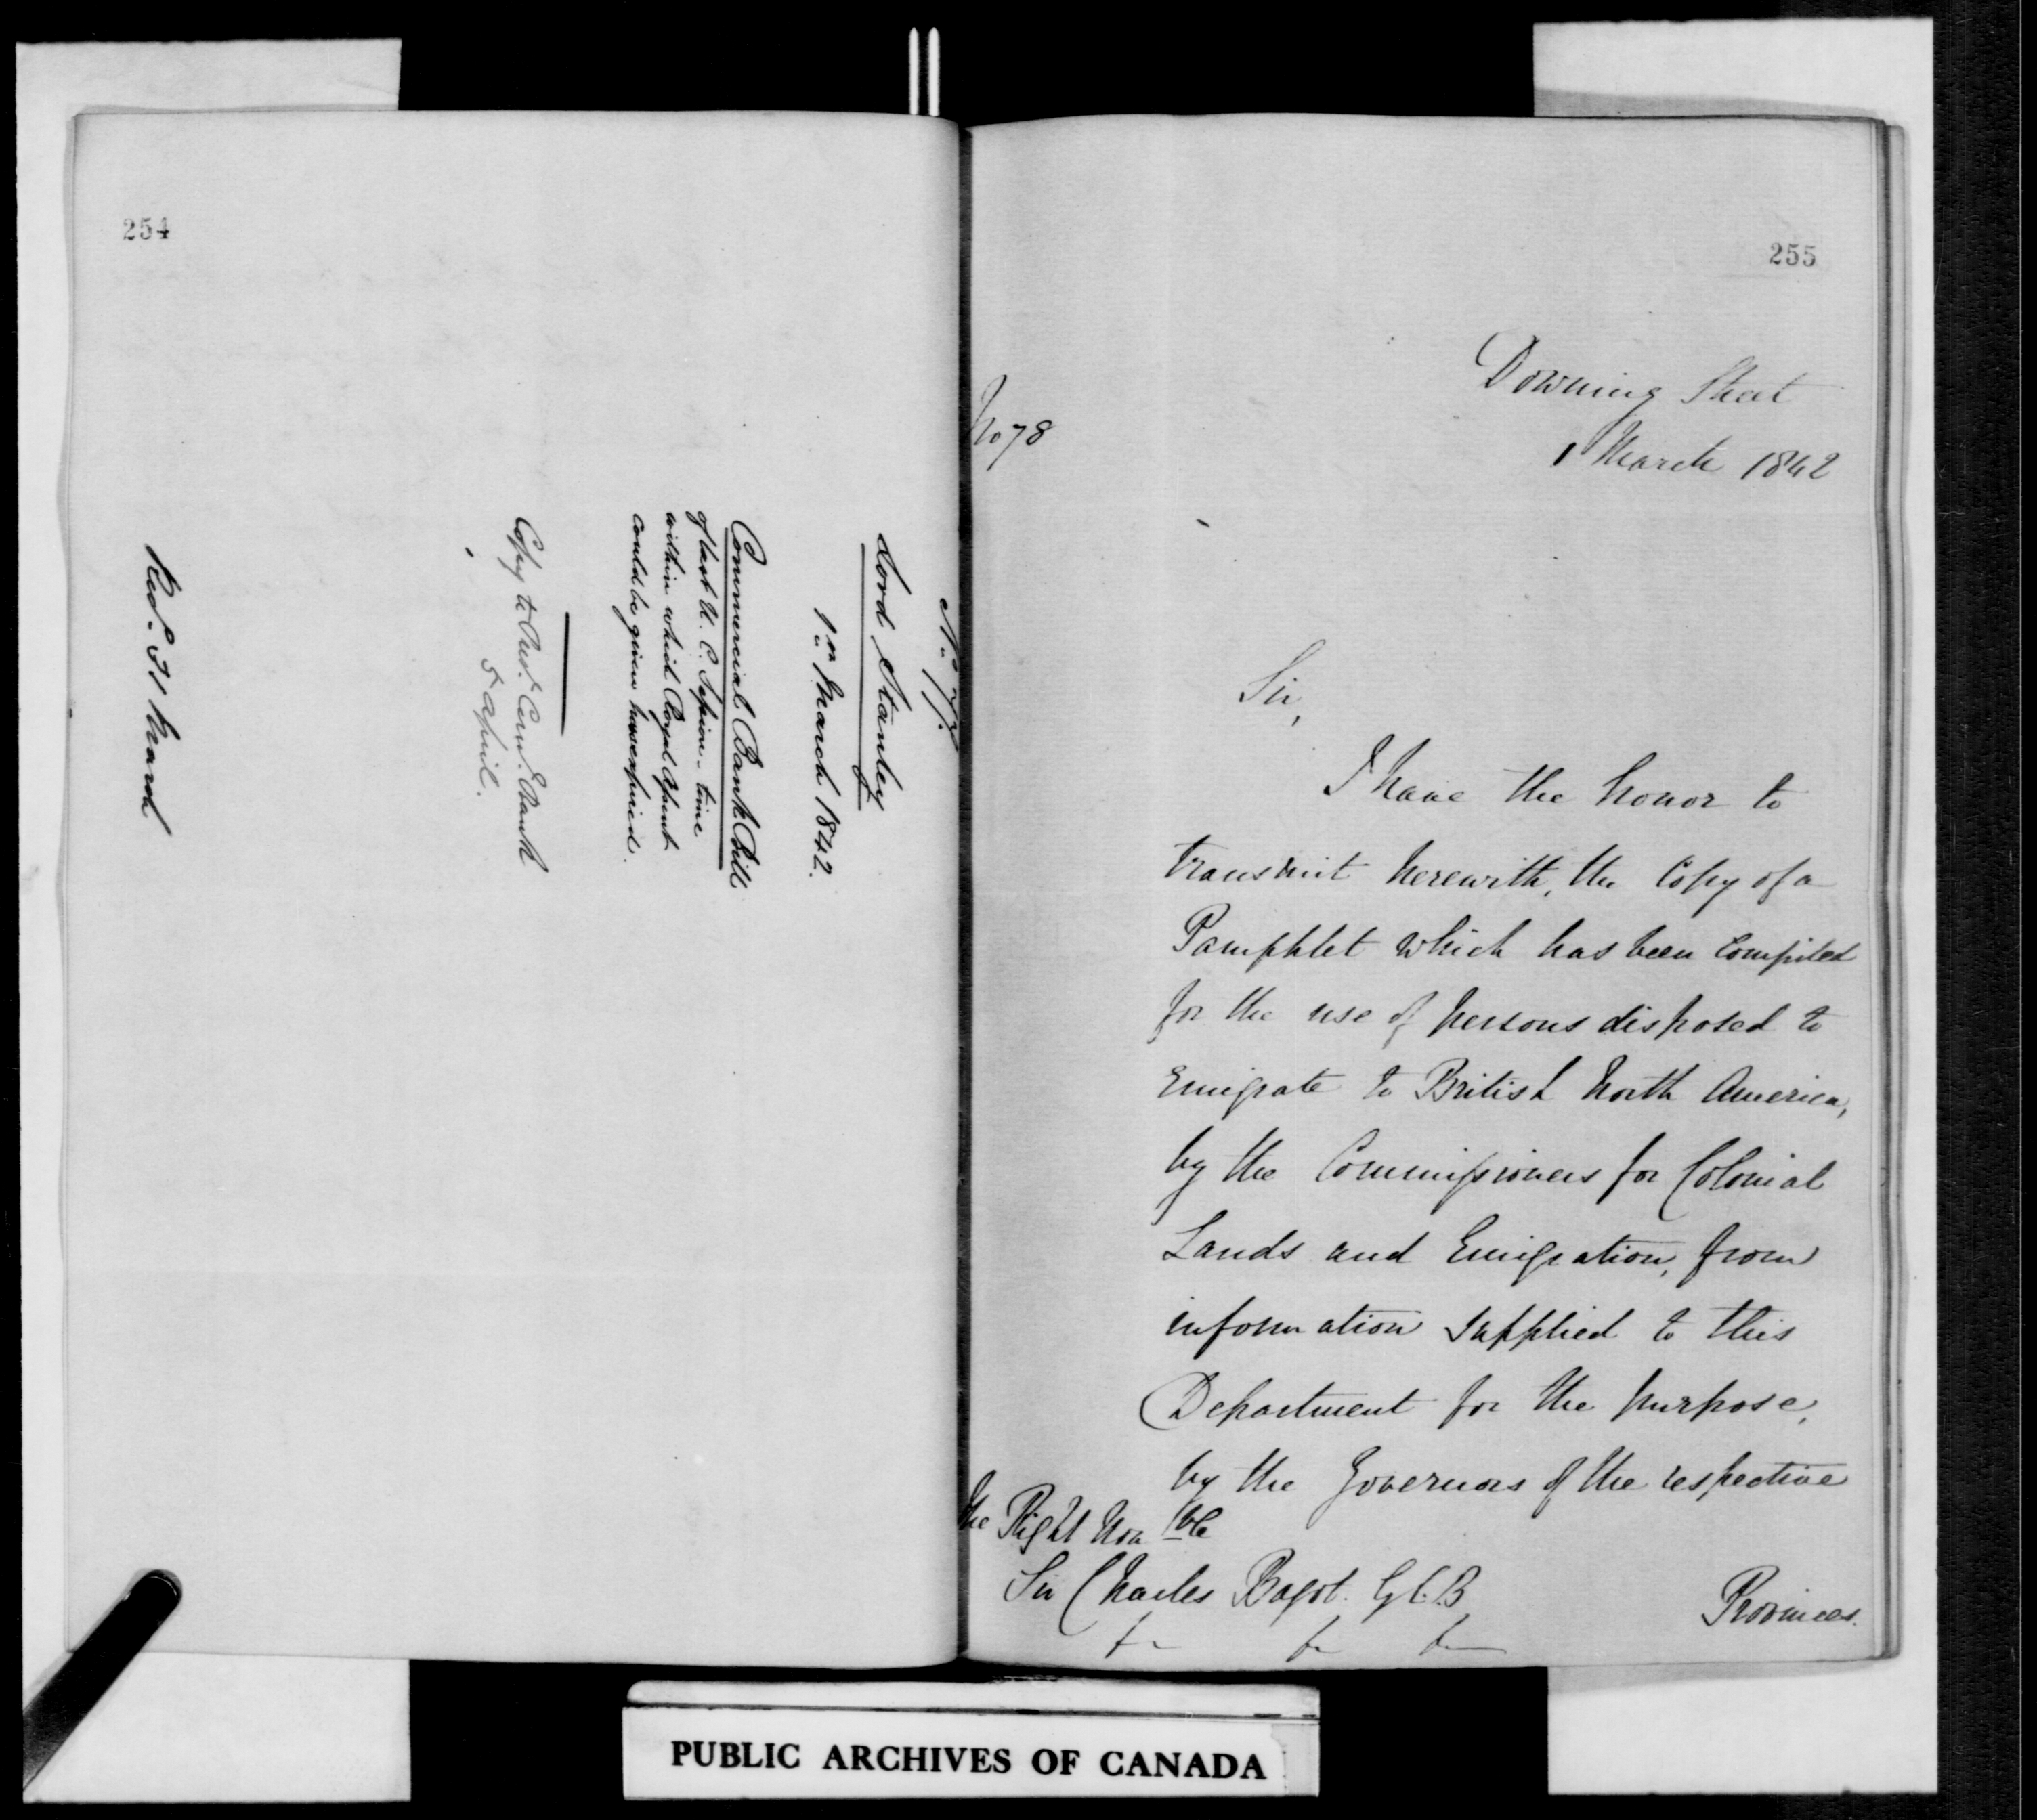 254
No. 77.
Lord Stanley
1st March 1842.
Commercial Bank Bill
of last U. C. Session - time
within which Royal Assent
could be given has expired.
Copy to Pres.t Com.l Bank
5 April.
Rec.d 31 March
255
No 78
Downing Street
1 March 1842
Sir,
I have the honor to
transmit herewith, the Copy of a
Pamphlet which has been compiled
for the use of persons disposed to
Emigrate to British North America,
by the Commissioners for Colonial
Lands and Emigration, from
information supplied to this
Department for the purpose,
by the Governors of the respective
The Right Hon ble
Sir Charles Bagot. G.C.B
Provinces.
PUBLIC ARCHIVES OF CANADA